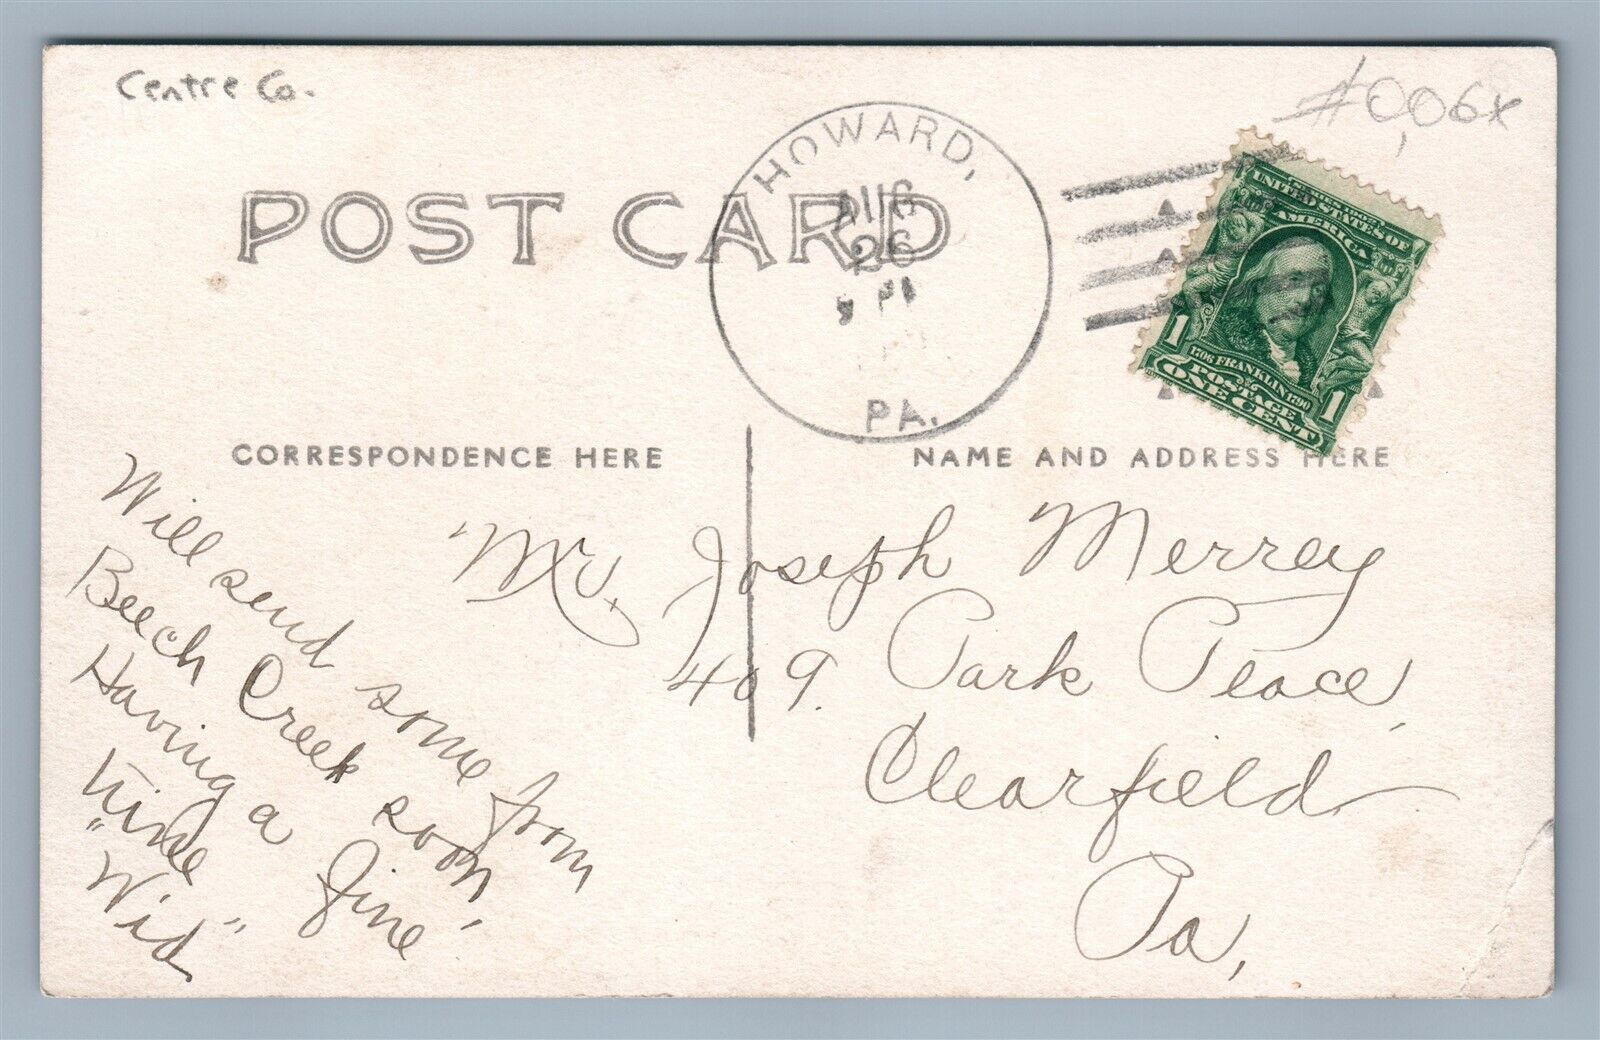 Centre Co.
#0,06x
POST CARD
HOWARD,
AUG
26
PA.
SERIES 1902
UNITED STATES OF
AMERICA
1706 FRANKLIN 1790
POSTAGE
1 ONE CENT 1
CORRESPONDENCE HERE
NAME AND ADDRESS HERE
Will send some from
Beech Creek soon,
Having a fine
time
"Wid"
Mr. Joseph Merrey
409. Park Place,
Clearfield
Pa,